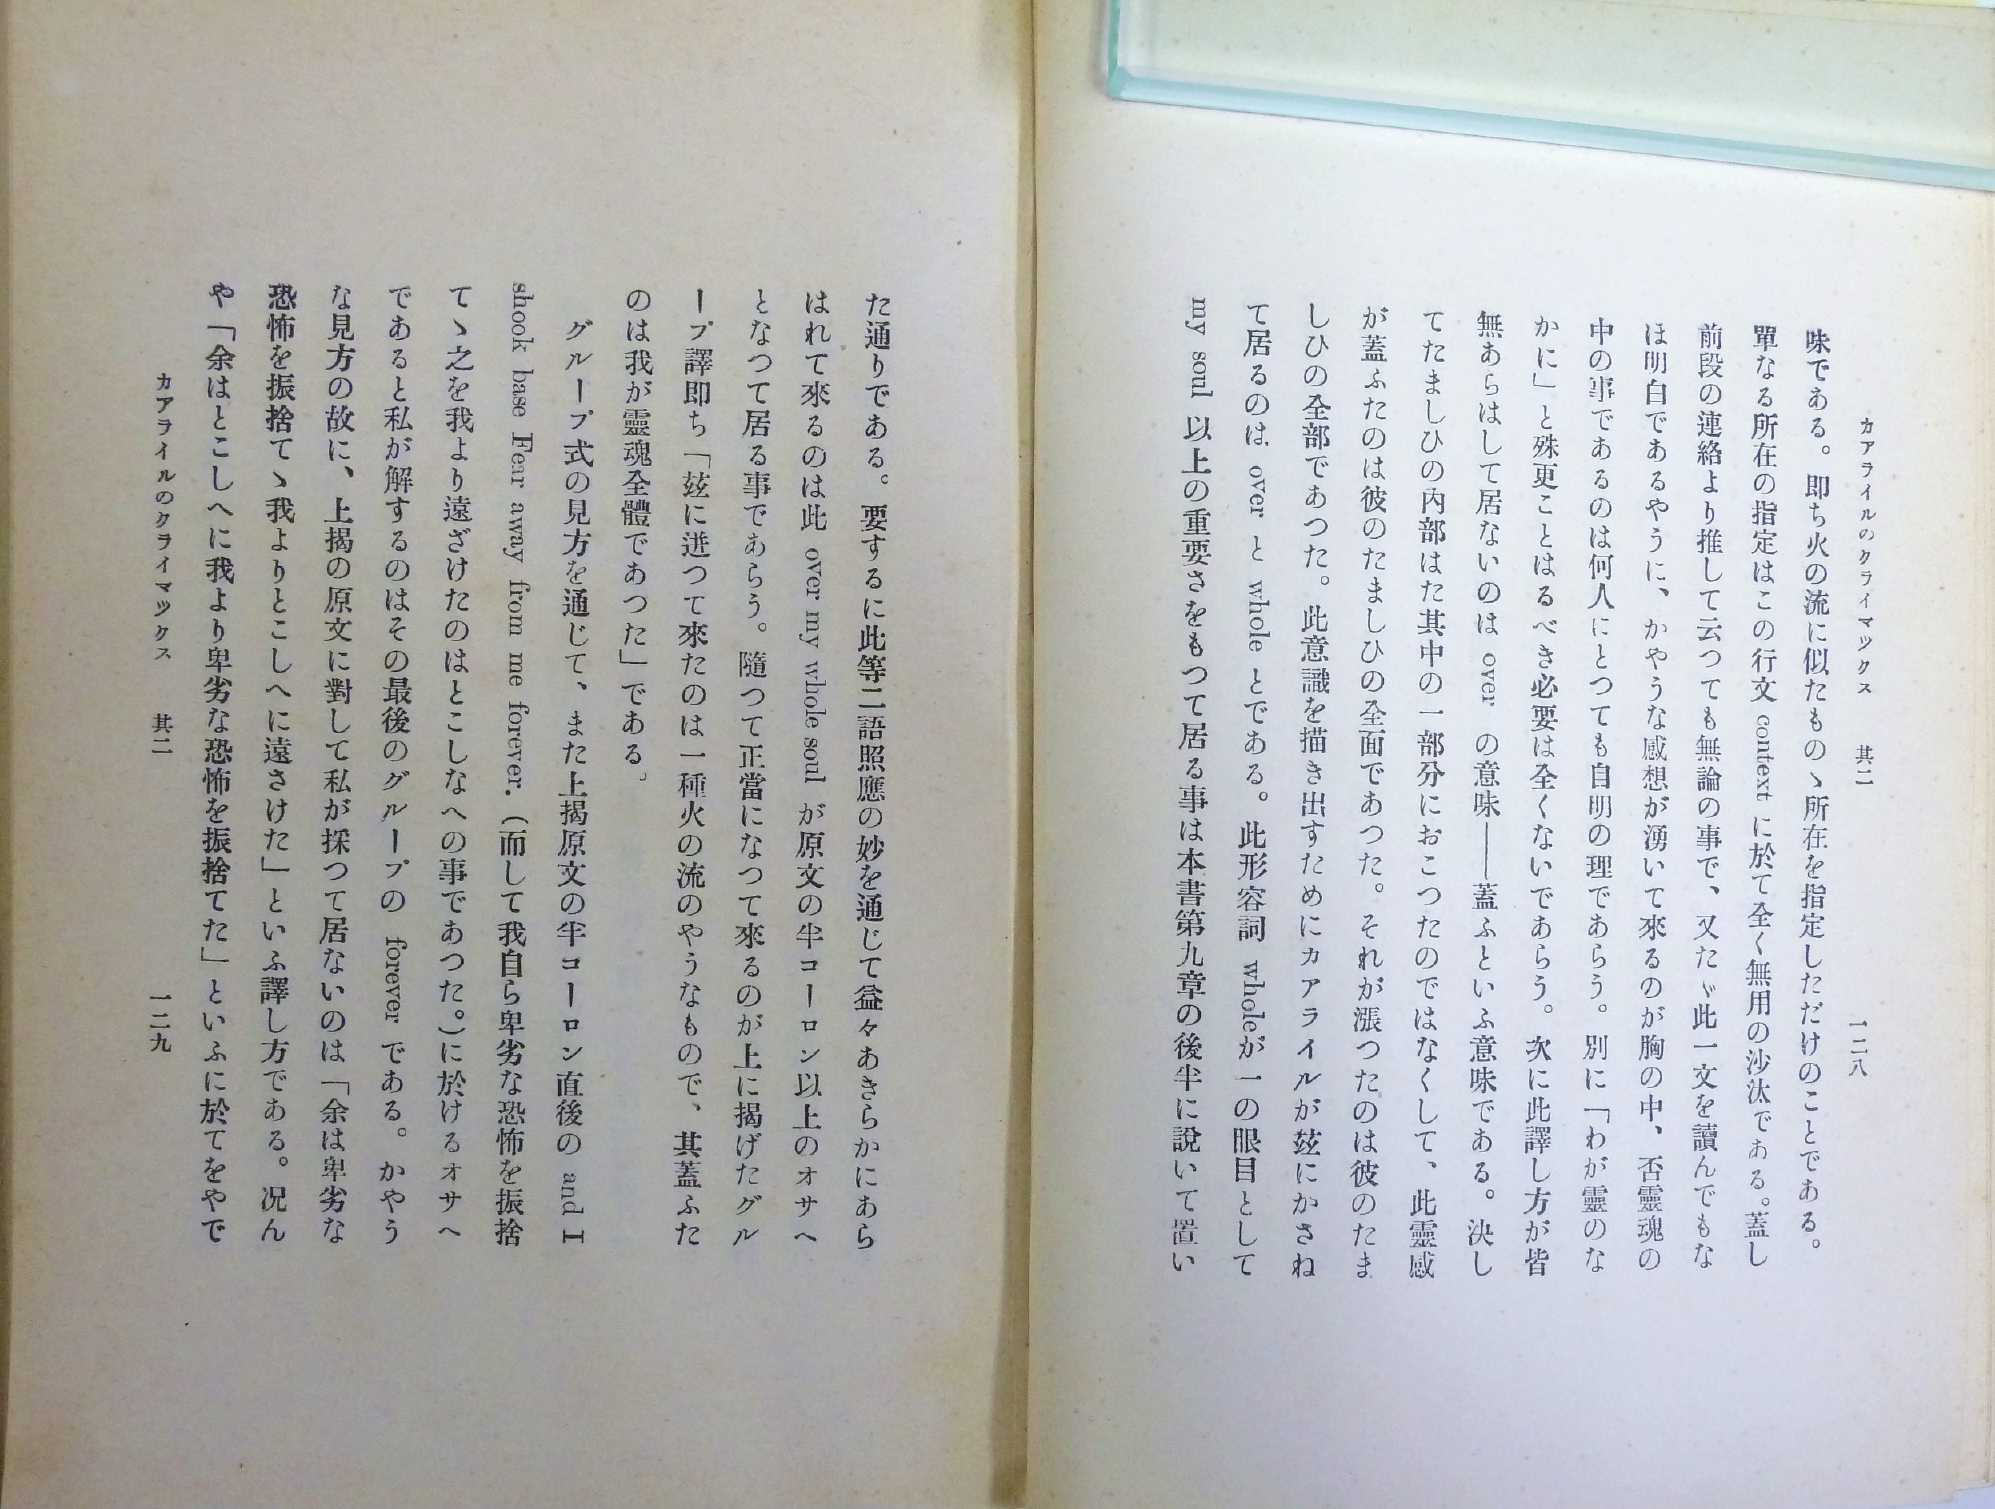 カアライルのクライマツクス　其二
一二八
味である。即ち火の流に似たものゝ所在を指定しただけのことである。
單なる所在の指定はこの行文 context に於て全く無用の沙汰である。蓋し
前段の連絡より推して云つても無論の事で、又たゞ此一文を讀んでもな
ほ明白であるやうに、かやうな感想が湧いて來るのが胸の中、否靈魂の
中の事であるのは何人にとつても自明の理であらう。別に「わが靈のな
かに」と殊更ことはるべき必要は全くないであらう。次に此譯し方が皆
無あらはして居ないのは over の意味――蓋ふといふ意味である。決し
てたましひの內部はた其中の一部分におこつたのではなくして、此靈感
が蓋ふたのは彼のたましひの全面であつた。それが漲つたのは彼のたま
しひの全部であつた。此意識を描き出すためにカアライルが玆にかさね
て居るのは over と whole とである。此形容詞 whole が一の眼目として
my soul 以上の重要さをもつて居る事は本書第九章の後半に說いて置い
た通りである。要するに此等二語照應の妙を通じて益々あきらかにあら
はれて來るのは此 over my whole soul が原文の半コーロン以上のオサヘ
となつて居る事であらう。隨つて正當になつて來るのが上に揭げたグル
ープ譯即ち「玆に迸つて來たのは一種火の流のやうなもので、其蓋ふた
のは我が靈魂全體であつた」である。
グループ式の見方を通じて、また上揭原文の半コーロン直後の and I
shook base Fear away from me forever.（而して我自ら卑劣な恐怖を振捨
てゝ之を我より遠ざけたのはとこしなへの事であつた。）に於けるオサヘ
であると私が解するのはその最後のグループの forever である。かやう
な見方の故に、上揭の原文に對して私が採つて居ないのは「余は卑劣な
恐怖を振捨てゝ我よりとこしへに遠さけた」といふ譯し方である。况ん
や「余はとこしへに我より卑劣な恐怖を振捨てた」といふに於てをやで
カアライルのクライマツクス　其二
一二九